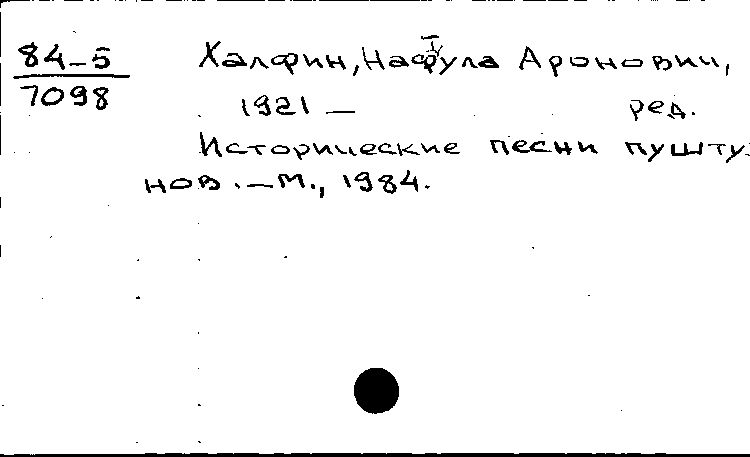 84-5
7098
Халфин, Нафтула Аронович,
1921 — ред.
Исторические песни пушту-
нов. — М., 1984.